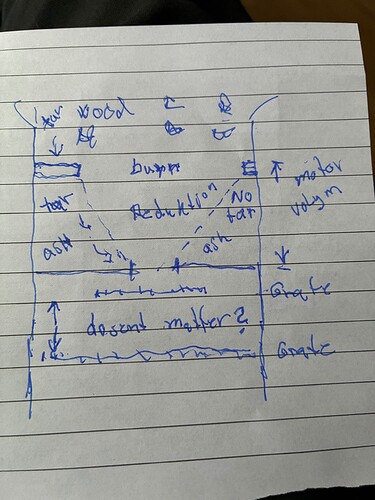 tar wood
burn
motor
tar Reduktion No
tar volym
ash ash
Grate
dosent mather?
Grate